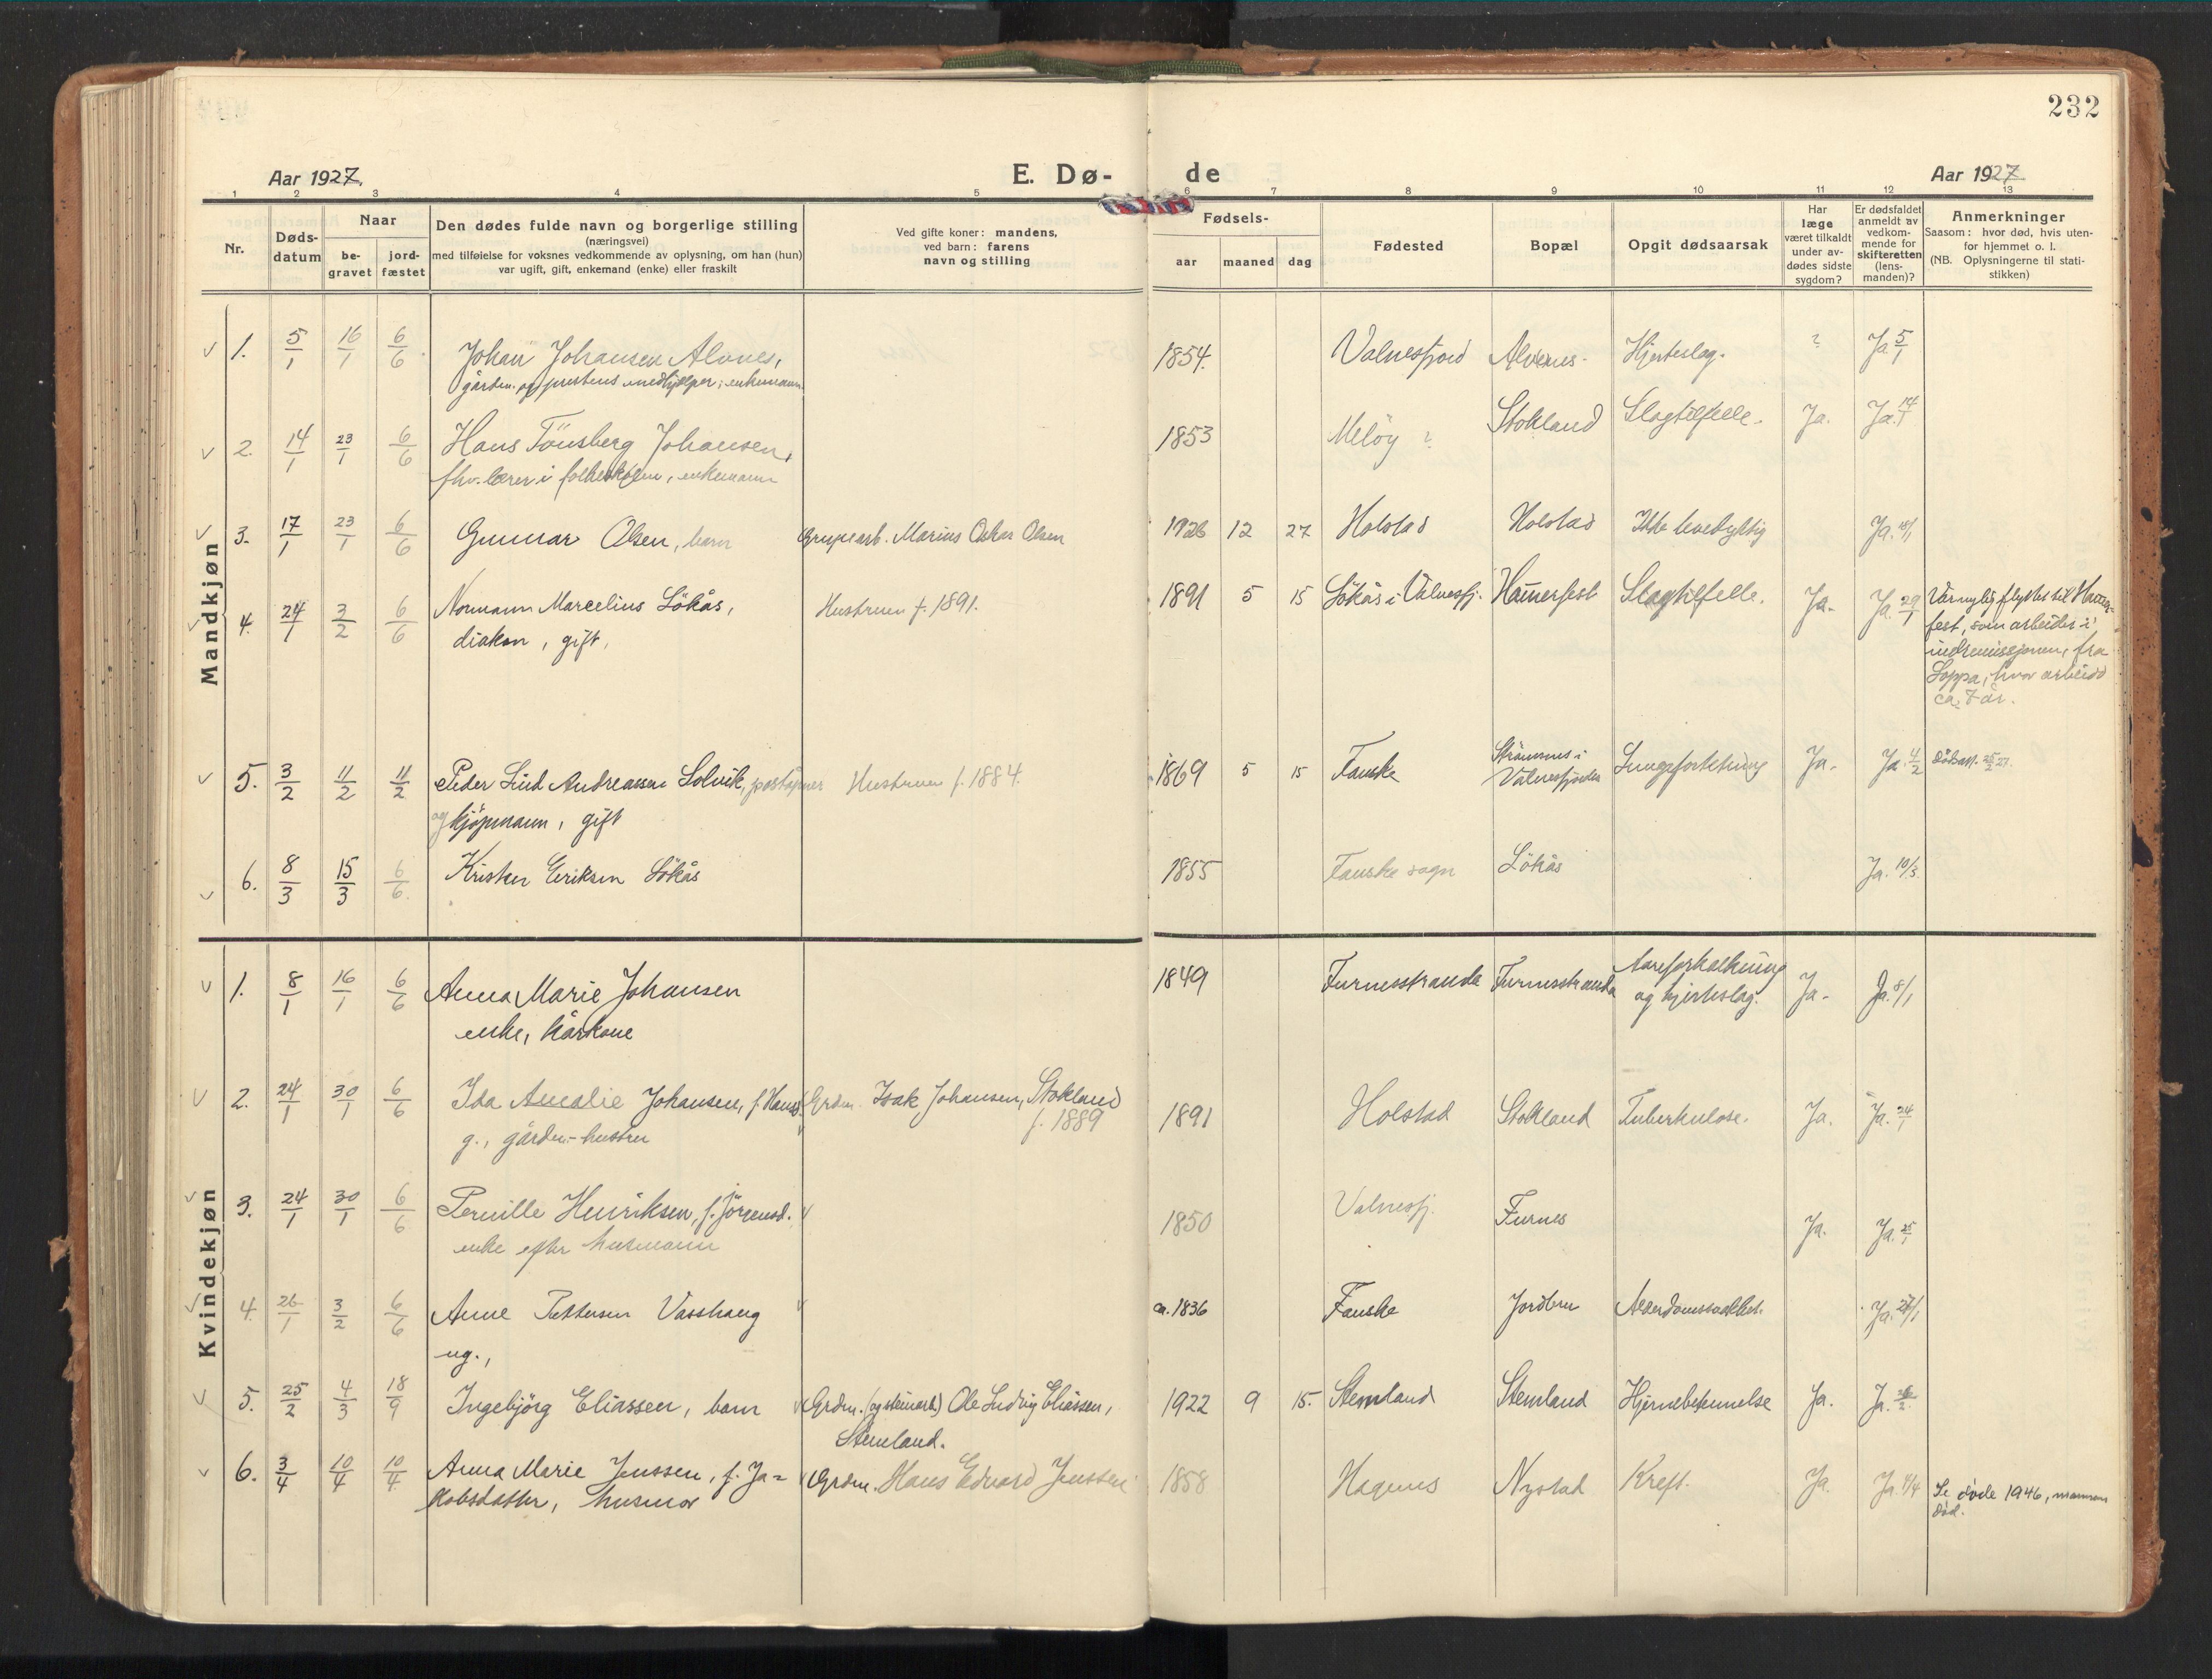 232
Aar 1927.
E. Dø-
de
Aar 1927
1 2 3 4 5 6 7 8 9 10 11 12 13
Nr.
Døds-
datum
Naar
be-
gravet
jord-
fæstet
Den dødes fulde navn og borgerlige stilling
(næringsvei)
med tilføielse for voksnes vedkommende av oplysning, om han (hun)
var ugift, gift, enkemand (enke) eller fraskilt
Ved gifte koner: mandens,
ved barn: farens
navn og stilling
Fødsels-
aar maaned dag
Fødested
Bopæl
Opgit dødsaarsak
Har
læge
været tilkaldt
under av-
dødes sidste
sygdom?
Er dødsfaldet
anmeldt av
vedkom-
mende for
skifteretten
(lens-
manden)?
Anmerkninger
Saasom: hvor død, hvis uten-
for hjemmet o. l.
(NB. Oplysningerne til stati-
stikken)
Mandkjøn
1. 5/1 16/1 6/6 Johan Johansen Alvnes, 1854. Valnesfjord Alvenes Hjerteslag. ? Ja 5/1
gårdm. og prestens medhjelper; enkemann
2. 14/1 23/1 6/6 Hans Tönsberg Johansen, 1853 Melöy ? Stokland Slagtilfelle. Ja. Ja. 14/1
fhv. lærer i folkeskolen, enkemann
3. 17/1 23/1 6/6 Gunnar Olsen, barn Grupearb. Marius Oskar Olsen 1926 12 27 Holstad Holstad Ikke levedyktig Ja. 18/1
4. 24/1 3/2 6/6 Normann Marcelius Lökås, Hustruen f. 1891. 1891 5 15 Lökås i Valnesfj. Hamerfest Slagtilfelle. Ja. Ja. 29/1 Var nylig flyttet til Hammer-
diakon, gift,
fest, som arbeider i
indremissjonen, fra
Loppa, hvor arbeidd
ca. 7 år.
5. 3/2 11/2 11/2 Peder Lind Andreassen Solvik, poståpner Hustruen f. 1884. 1869 5 15 Fauske Strömsnes i Lungefortetning Ja. Ja. 4/2 Dödsatt. 25/2 27.
og kjöpmann, gift
Valnesfjorden
6. 8/3 15/3 6/6 Kristen Eriksen Lökås 1855 Fauske sogn Lökås Ja. 10/3.
Kvindekjøn
1. 8/1 16/1 6/6 Anna Marie Johansen 1849 Furnesstranda Furnesstranda Aareforkalkning Ja. Ja. 8/1
enke, kårkone
og hjerteslag.
2. 24/1 30/1 6/6 Ida Amalie Johansen, f. Hans. Grdm. Isak Johansen, Stokland 1891 Holstad Stokland Tuberkulose. Ja. Ja. 24/1
g., gårdm.-hustru f. 1889
3. 24/1 30/1 6/6 Pernille Henriksen, f. Jörgensd. 1850 Valnesfj. Furnes Ja. Ja. 25/1
enke efter husmann
4. 26/1 3/2 6/6 Anne Pettersen Vasshaug ca. 1836 Fauske Jordbru Alderdomssvakhet. Ja. 27/1
ug.,
5. 25/2 4/3 18/9 Ingebjörg Eliassen, barn Grdm. (og steinarb.) Ole Ludvig Eliassen, 1922 9 15. Stemland Stemland Hjernebetennelse Ja. Ja. 26/2
Stemland.
6. 3/4 10/4 10/4 Anna Marie Jenssen, f. Ja= Grdm. Hans Edvard Jenssen 1858 Hagenes Nystad Kreft. Ja. Ja. 4/4 Se döde 1946, mannens
kobsdatter, husmor
död.